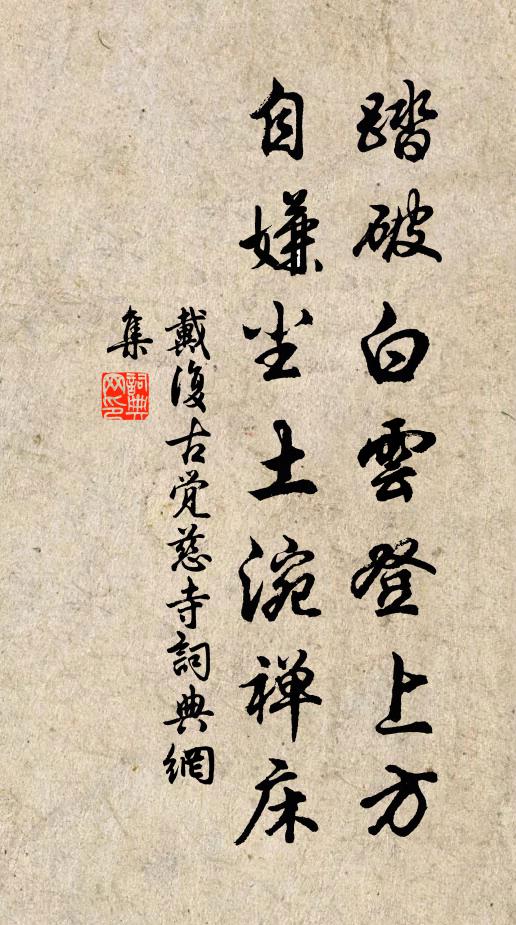 踏破白雲登上方
自嫌尘土涴禅床
戴復古觉慈寺詞典網
集
詞典
网印